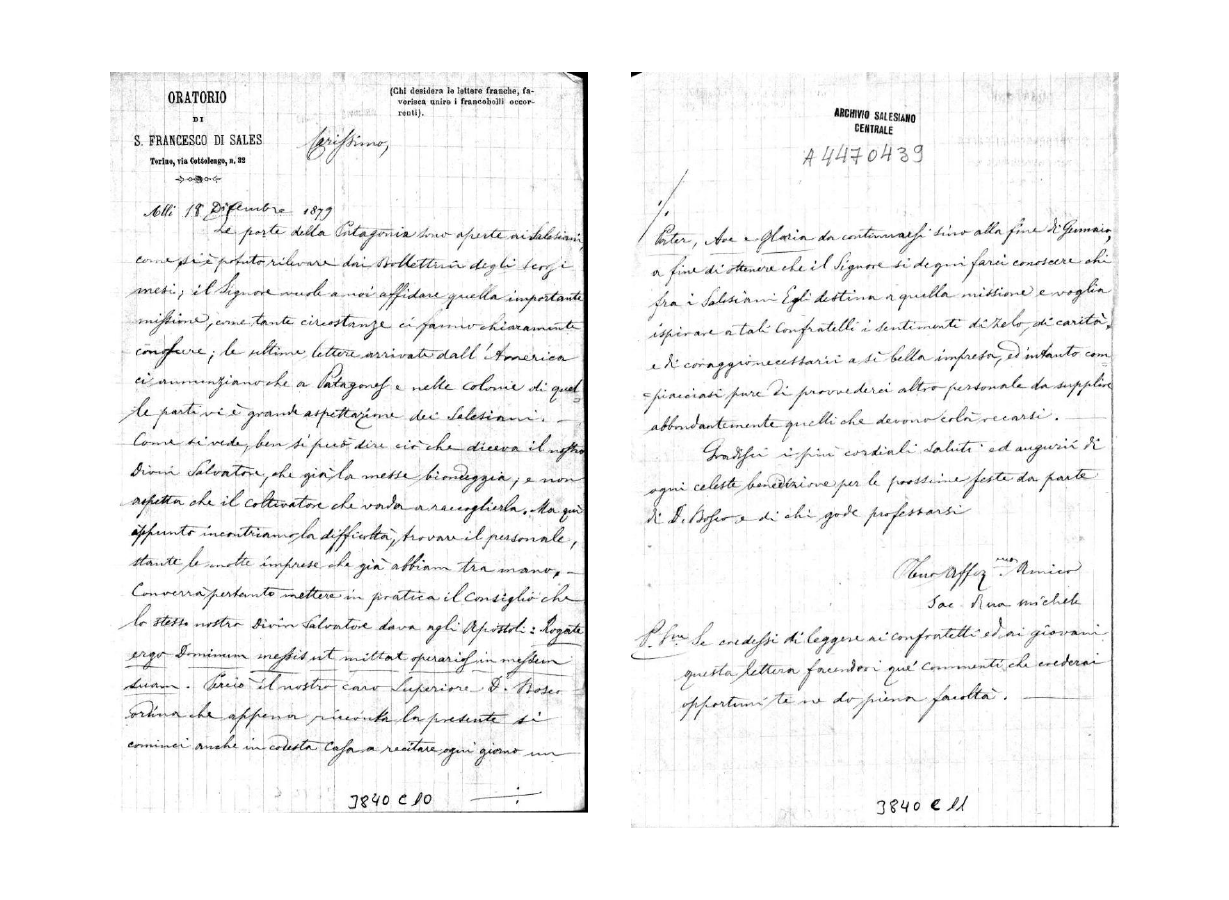 ORATORIO
DI
S. FRANCESCO DI SALES
Torino, via Cottolengo, n. 32
(Chi desidera le lettere franche, fa-
vorisca unire i francobolli occor-
renti).
Carissimo,
Alli 18 Dicembre 1879
Le porte della Patagonia sono aperte ai Salesiani
come si è potuto rilevare dai Bollettini degli scorsi
mesi; il Signore vuole a noi affidare quella importante
missione, come tante circostanze ci fanno chiaramente
conoscere; le ultime lettere arrivate dall'America
ci annunziano che a Patagones e nelle colonie di quel-
le parti vi è grande aspettazione dei Salesiani. –
Come si vede, ben si può dire ciò che diceva il nostro
Divin Salvatore, che già la messe biondeggia; e non
aspetta che il coltivatore che vada a raccoglierla. Ma qui
appunto incontriamo la difficoltà, trovare il personale,
stante le molte imprese che già abbiam tra mano. –
Converrà pertanto mettere in pratica il Consiglio che
lo stesso nostro Divin Salvatore dava agli Apostoli: Rogate
ergo Dominum messis ut mittat operarios in messem
suam. Perciò il nostro caro Superiore D. Bosco
ordina che appena ricevuta la presente si
cominci anche in codesta Casa a recitare ogni giorno un
3840 C 10
./.
ARCHIVIO SALESIANO
CENTRALE
A4470439
./.
Pater, Ave e Gloria da continuarsi sino alla fine di Gennaio,
a fine di ottenere che il Signore si degni farci conoscere chi
fra i Salesiani Egli destina a quella missione e voglia
ispirare a tali Confratelli i sentimenti di zelo, di carità,
e di coraggio necessarii a sì bella impresa, ed intanto com-
=piacciasi pure di provvederci altro personale da supplire
abbondantemente quelli che devono colà recarsi.
Gradisci i più cordiali saluti ed augurii di
ogni celeste benedizione per le prossime feste da parte
di D. Bosco e di chi gode professarsi
Tuo Affez.mo Amico
Sac. Rua Michele
P.S. Se credessi di leggere ai confratelli ed ai giovani
questa lettera facendovi que' commenti che crederai
opportuni te ne do piena facoltà. —
3840 C 11